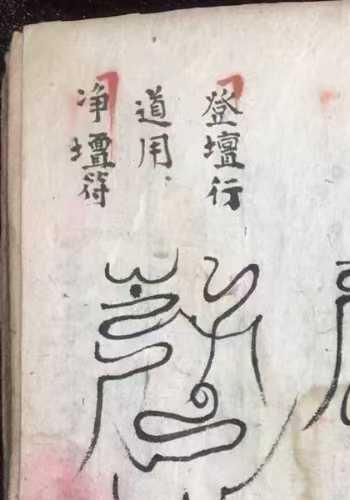 登壇行
道用
净壇符